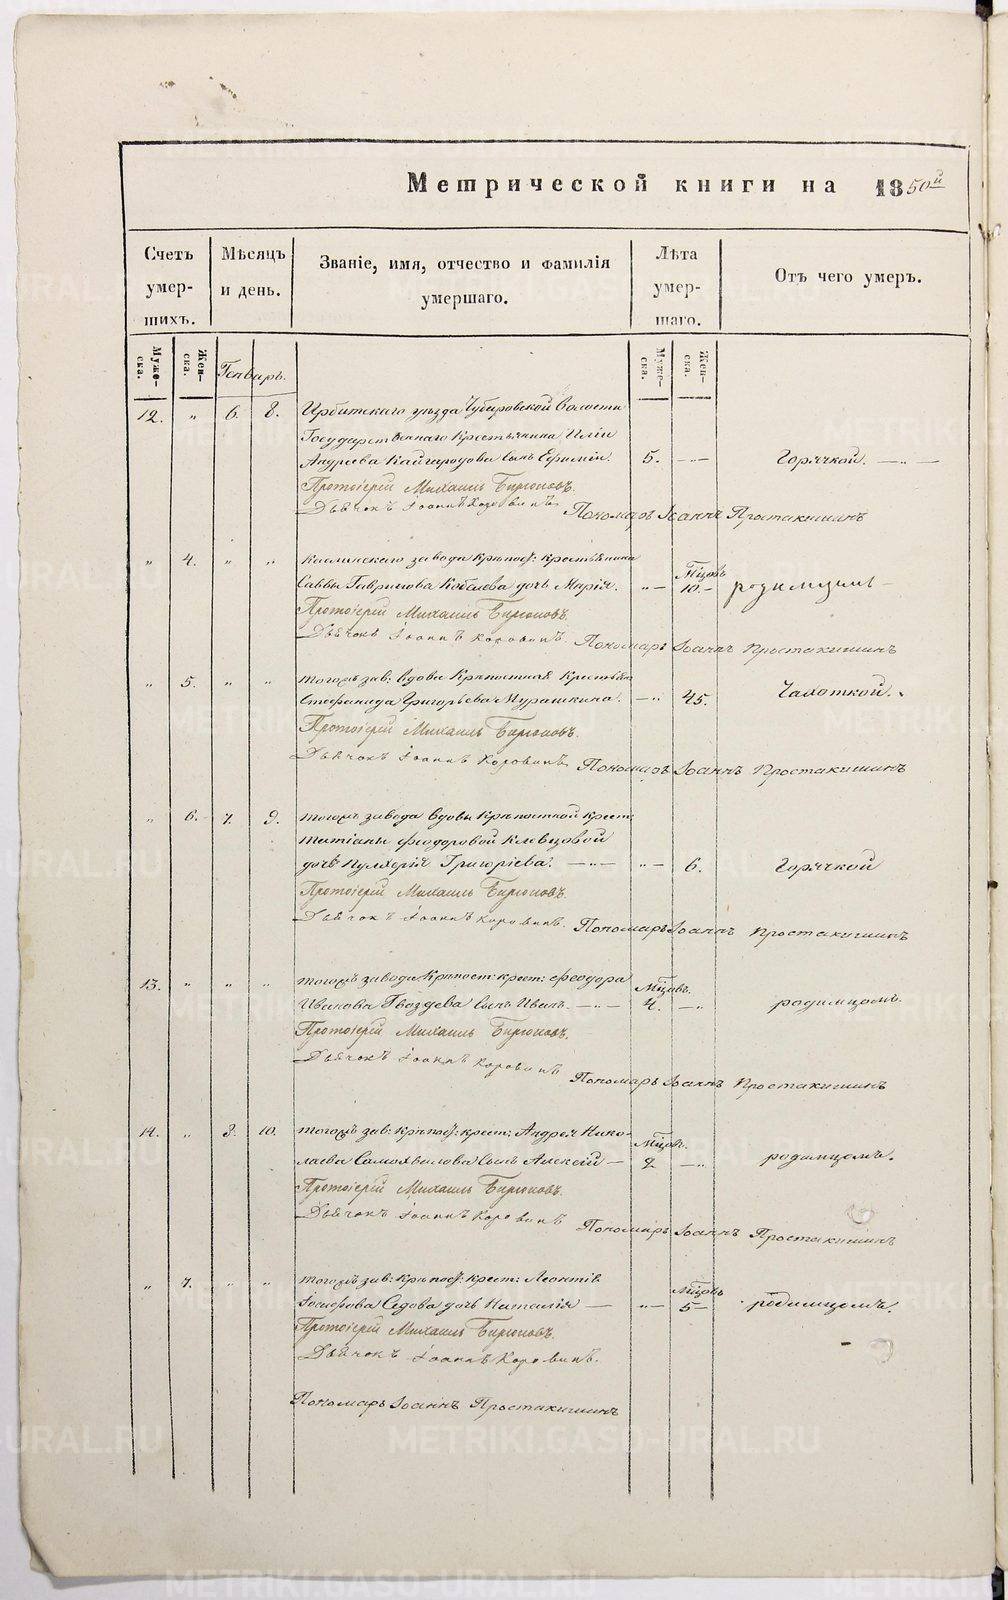 Метрической книги на 1850й
Счетъ умер-шихъ.
Мѣсяцъ и день.
Званіе, имя, отчество и фамилія умершаго.
Лѣта умер-шаго.
Отъ чего умеръ.
Муже-ска.
Жен-ска.
Генварь.
Муже-ска.
Жен-ска.
12. " 6. 8. Ирбитскаго уѣзда Чубаровской Волости
Государственнаго Крестьянина Иліи
Андреева Кайгородова сынъ Ефимій. 5. —"— Горячкой. —"—
Протоіерей Михаилъ Бирюковъ.
Дьячокъ Іоаннъ Коровинъ Пономарь Іоаннъ Простакишинъ
" 4. " " Каслинскаго завода крѣпост: крестьянина
Саввы Гаврилова Кобелева дочь Марія. "— Мѣсцовъ 10.— родимцемъ —
Протоіерей Михаилъ Бирюковъ.
Дьячокъ Іоаннъ Коровинъ. Пономарь Іоаннъ Простакишинъ
" 5. " " тогожъ зав: вдова Крѣпостная Крестьян
Стефанида Григорьева Мурашкина. —" 45. Чахоткой.
Протоіерей Михаилъ Бирюковъ.
Дьячокъ Іоаннъ Коровинъ Пономарь Іоаннъ Простакишинъ
" 6. 7. 9. тогожъ завода вдовы Крѣпостной крест:
Татіаны Феодоровой Клевцовой
дочь Пулхерія Григоріева. —"— "— 6. Горячкой
Протоіерей Михаилъ Бирюковъ.
Дьячокъ Іоаннъ Коровинъ. Пономарь Іоаннъ Простакишинъ
13. " " " тогожъ завода Крѣпост: крест: Феодора
Иванова Гвоздева сынъ Иванъ. —"— Мѣсцовъ. 4. —" родимцомъ.
Протоіерей Михаилъ Бирюковъ.
Дьячокъ Іоаннъ Коровинъ Пономарь Іоаннъ Простакишинъ
14. " 8. 10. тогожъ зав: Крѣпост: крест: Андрея Нико-
лаева Самохвалова сынъ Алексій — Мѣсцовъ. 2 —" родимцомъ.
Протоіерей Михаилъ Бирюковъ.
Дьячокъ Іоаннъ Коровинъ Пономарь Іоаннъ Простакишинъ
" 7. " " тогожъ зав: Крѣпост: крест: Леонтія
Іосифова Седова дочь Наталія — "— Мѣсцовъ 5— родимцомъ.
Протоіерей Михаилъ Бирюковъ.
Дьячокъ Іоаннъ Коровинъ.
Пономарь Іоаннъ Простакишинъ
METRIKI.GASO-URAL.RU